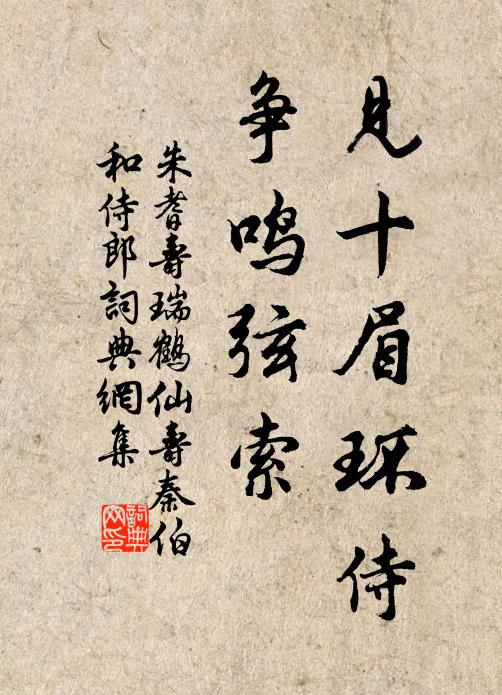 见十眉环侍
争鸣弦索
朱耆寿瑞鶴仙寿秦伯
和侍郎詞典網集
詞典